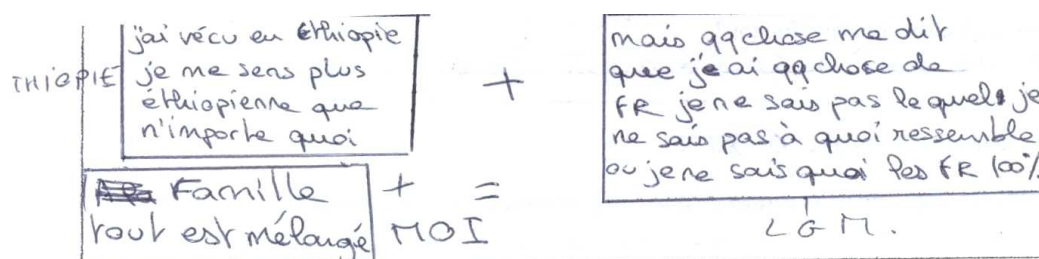 j'ai vécu en éthiopie
THIOPIE je me sens plus
éthiopienne que
n'importe quoi
+
mais qqchose me dit
que je ai qqchose de
FR je ne sais pas lequel je
ne sais pas à quoi ressemble
ou je ne sais quoi les FR 100%
Famille + =
tout est mélangé MOI
LGM.